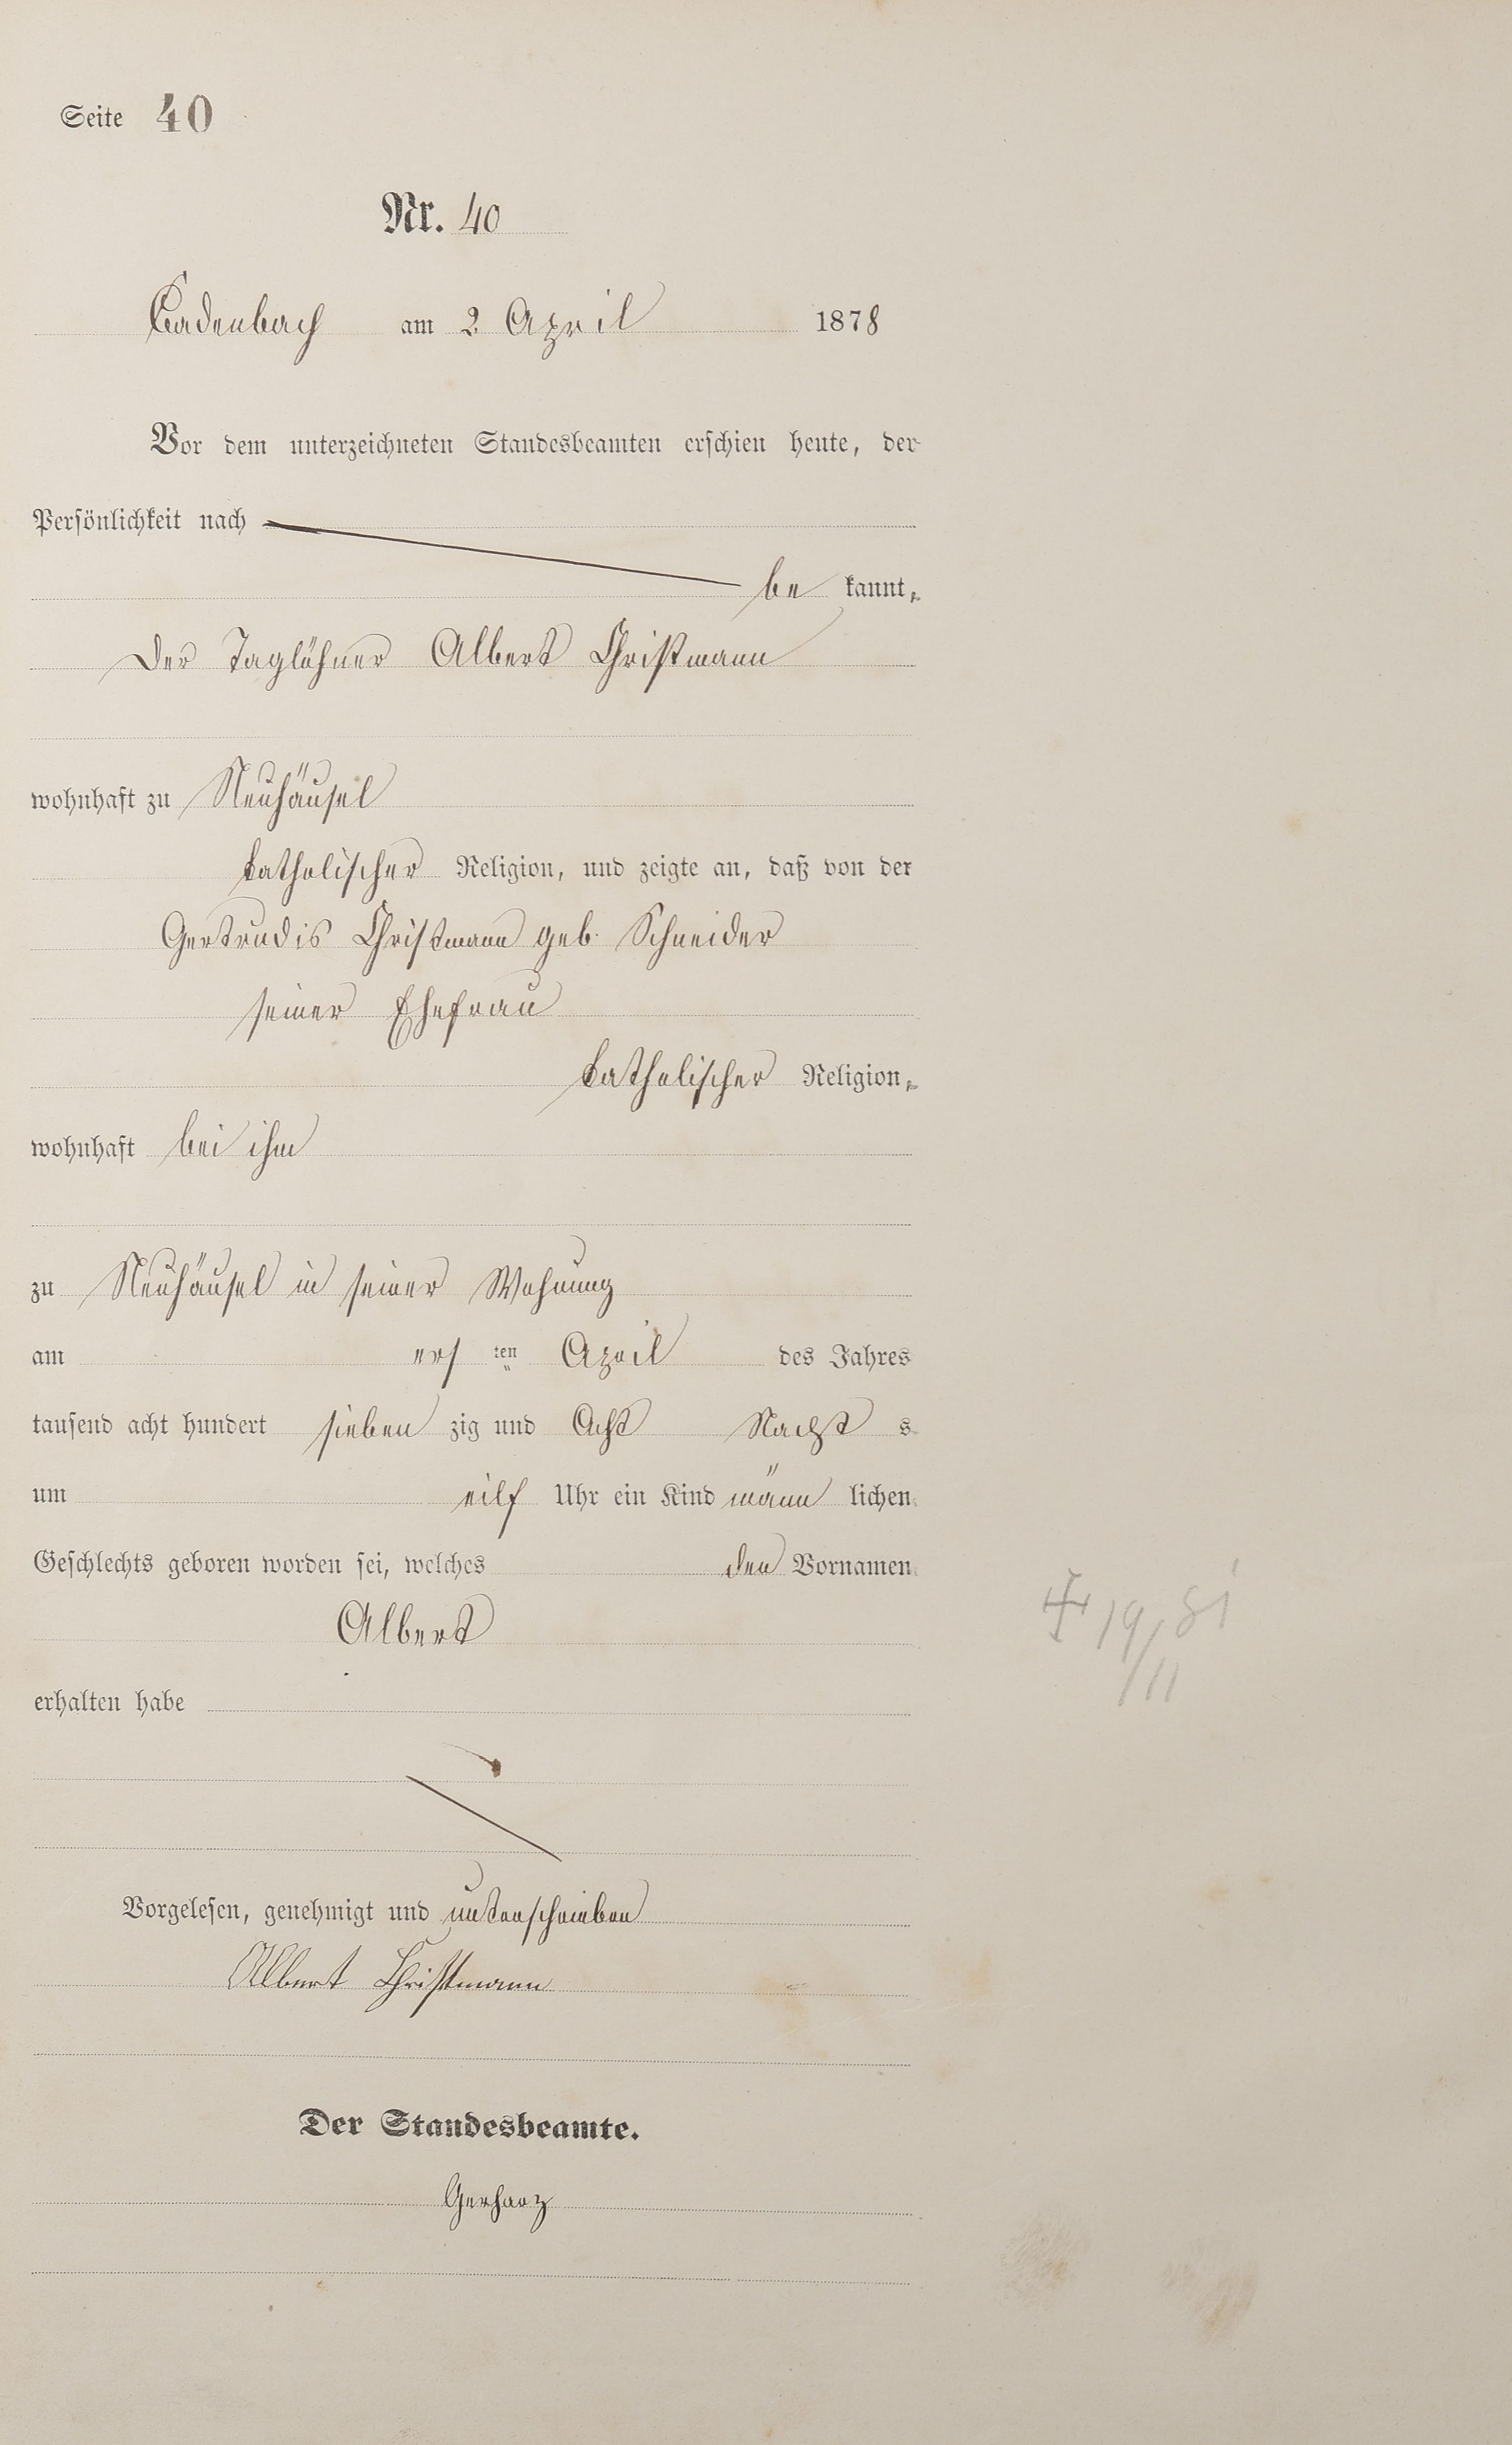 Seite 40
Nr. 40
Cadenbach am 2 April 1878
Vor dem unterzeichneten Standesbeamten erschien heute, der
Persönlichkeit nach
be kannt,
Der Taglöhner Albert Christmann
wohnhaft zu Neuhäusel
katholischer Religion, und zeigte an, daß von der
Gertrudis Christmann geb. Schneider
seiner Ehefrau
katholischer Religion,
wohnhaft bei ihm
zu Neuhäusel in seiner Wohnung
am ers ten April des Jahres
tausend acht hundert sieben zig und Acht Nacht s
um eilf Uhr ein Kind männ lichen
Geschlechts geboren worden sei, welches den Vornamen
Albert
erhalten habe
Vorgelesen, genehmigt und unterschrieben
Albert Christmann
Der Standesbeamte.
Gerharz
19/11 81